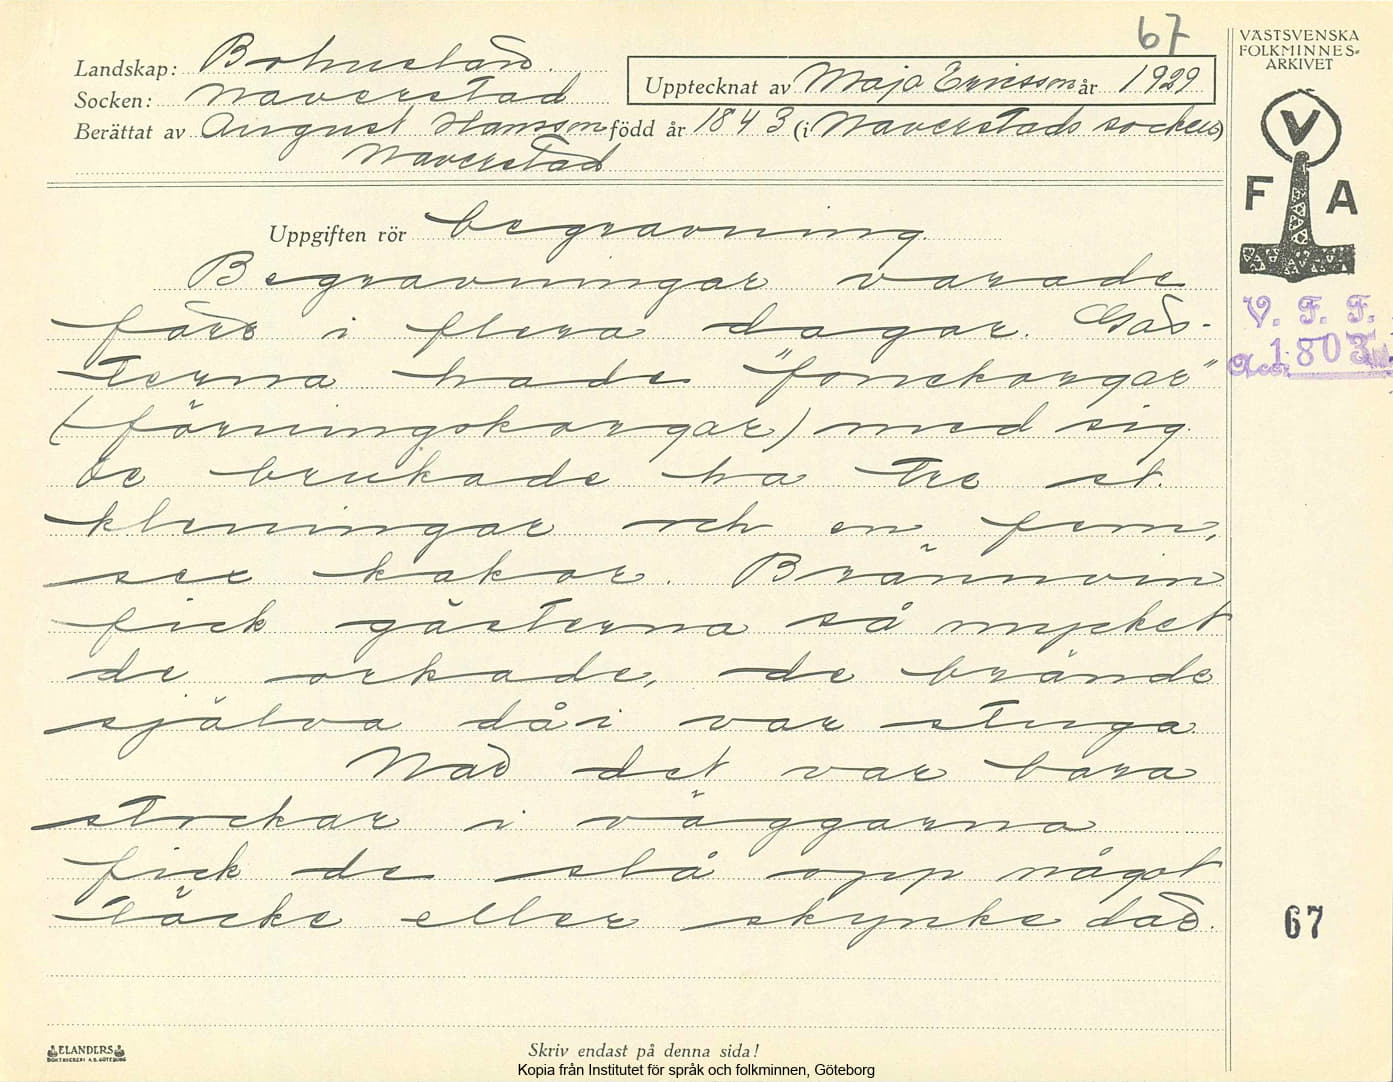 67
VÄSTSVENSKA
FOLKMINNES-
ARKIVET
Landskap: Bohuslän.
Upptecknat av Maja Ericsson år 1929
Socken: Naverstad
Berättat av August Hansson född år 1843 (i Naverstads socken)
Naverstad
V
F A
Uppgiften rör begravning.
Begravningar varade
förr i flera dagar. Gäs-
terna hade "fonekorgar"
(förningskorgar) med sig
de brukade ha tre st.
kleningar och en fem,
sex kakor. Brännvin
fick gästerna så mycket
de orkade, de brände
själva då i var stuga.
När det var bara
stockar i väggarna
fick de slå opp något
täcke eller skynke där.
V. F. F.
Acc. 1803
67
ELANDERS
BOKTRYCKERI A.B. GÖTEBORG
Skriv endast på denna sida!
Kopia från Institutet för språk och folkminnen, Göteborg